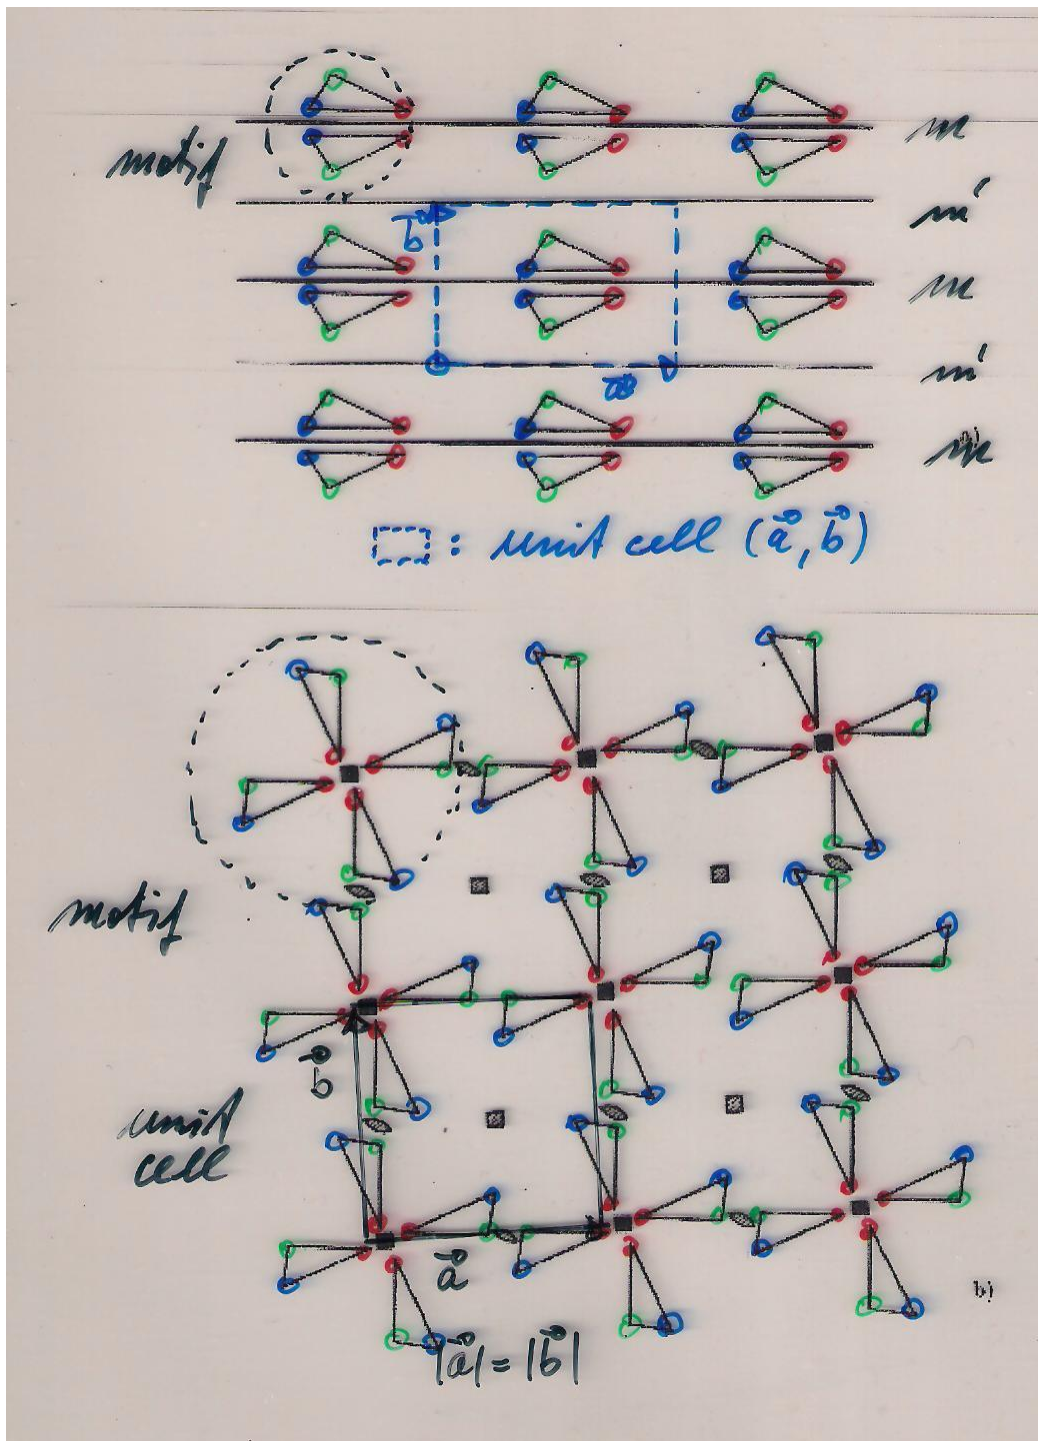 motif
m
m'
b⃗
m
m'
a⃗
m
: unit cell (a⃗, b⃗)
motif
b⃗
unit
cell
a⃗
b)
|a⃗| = |b⃗|